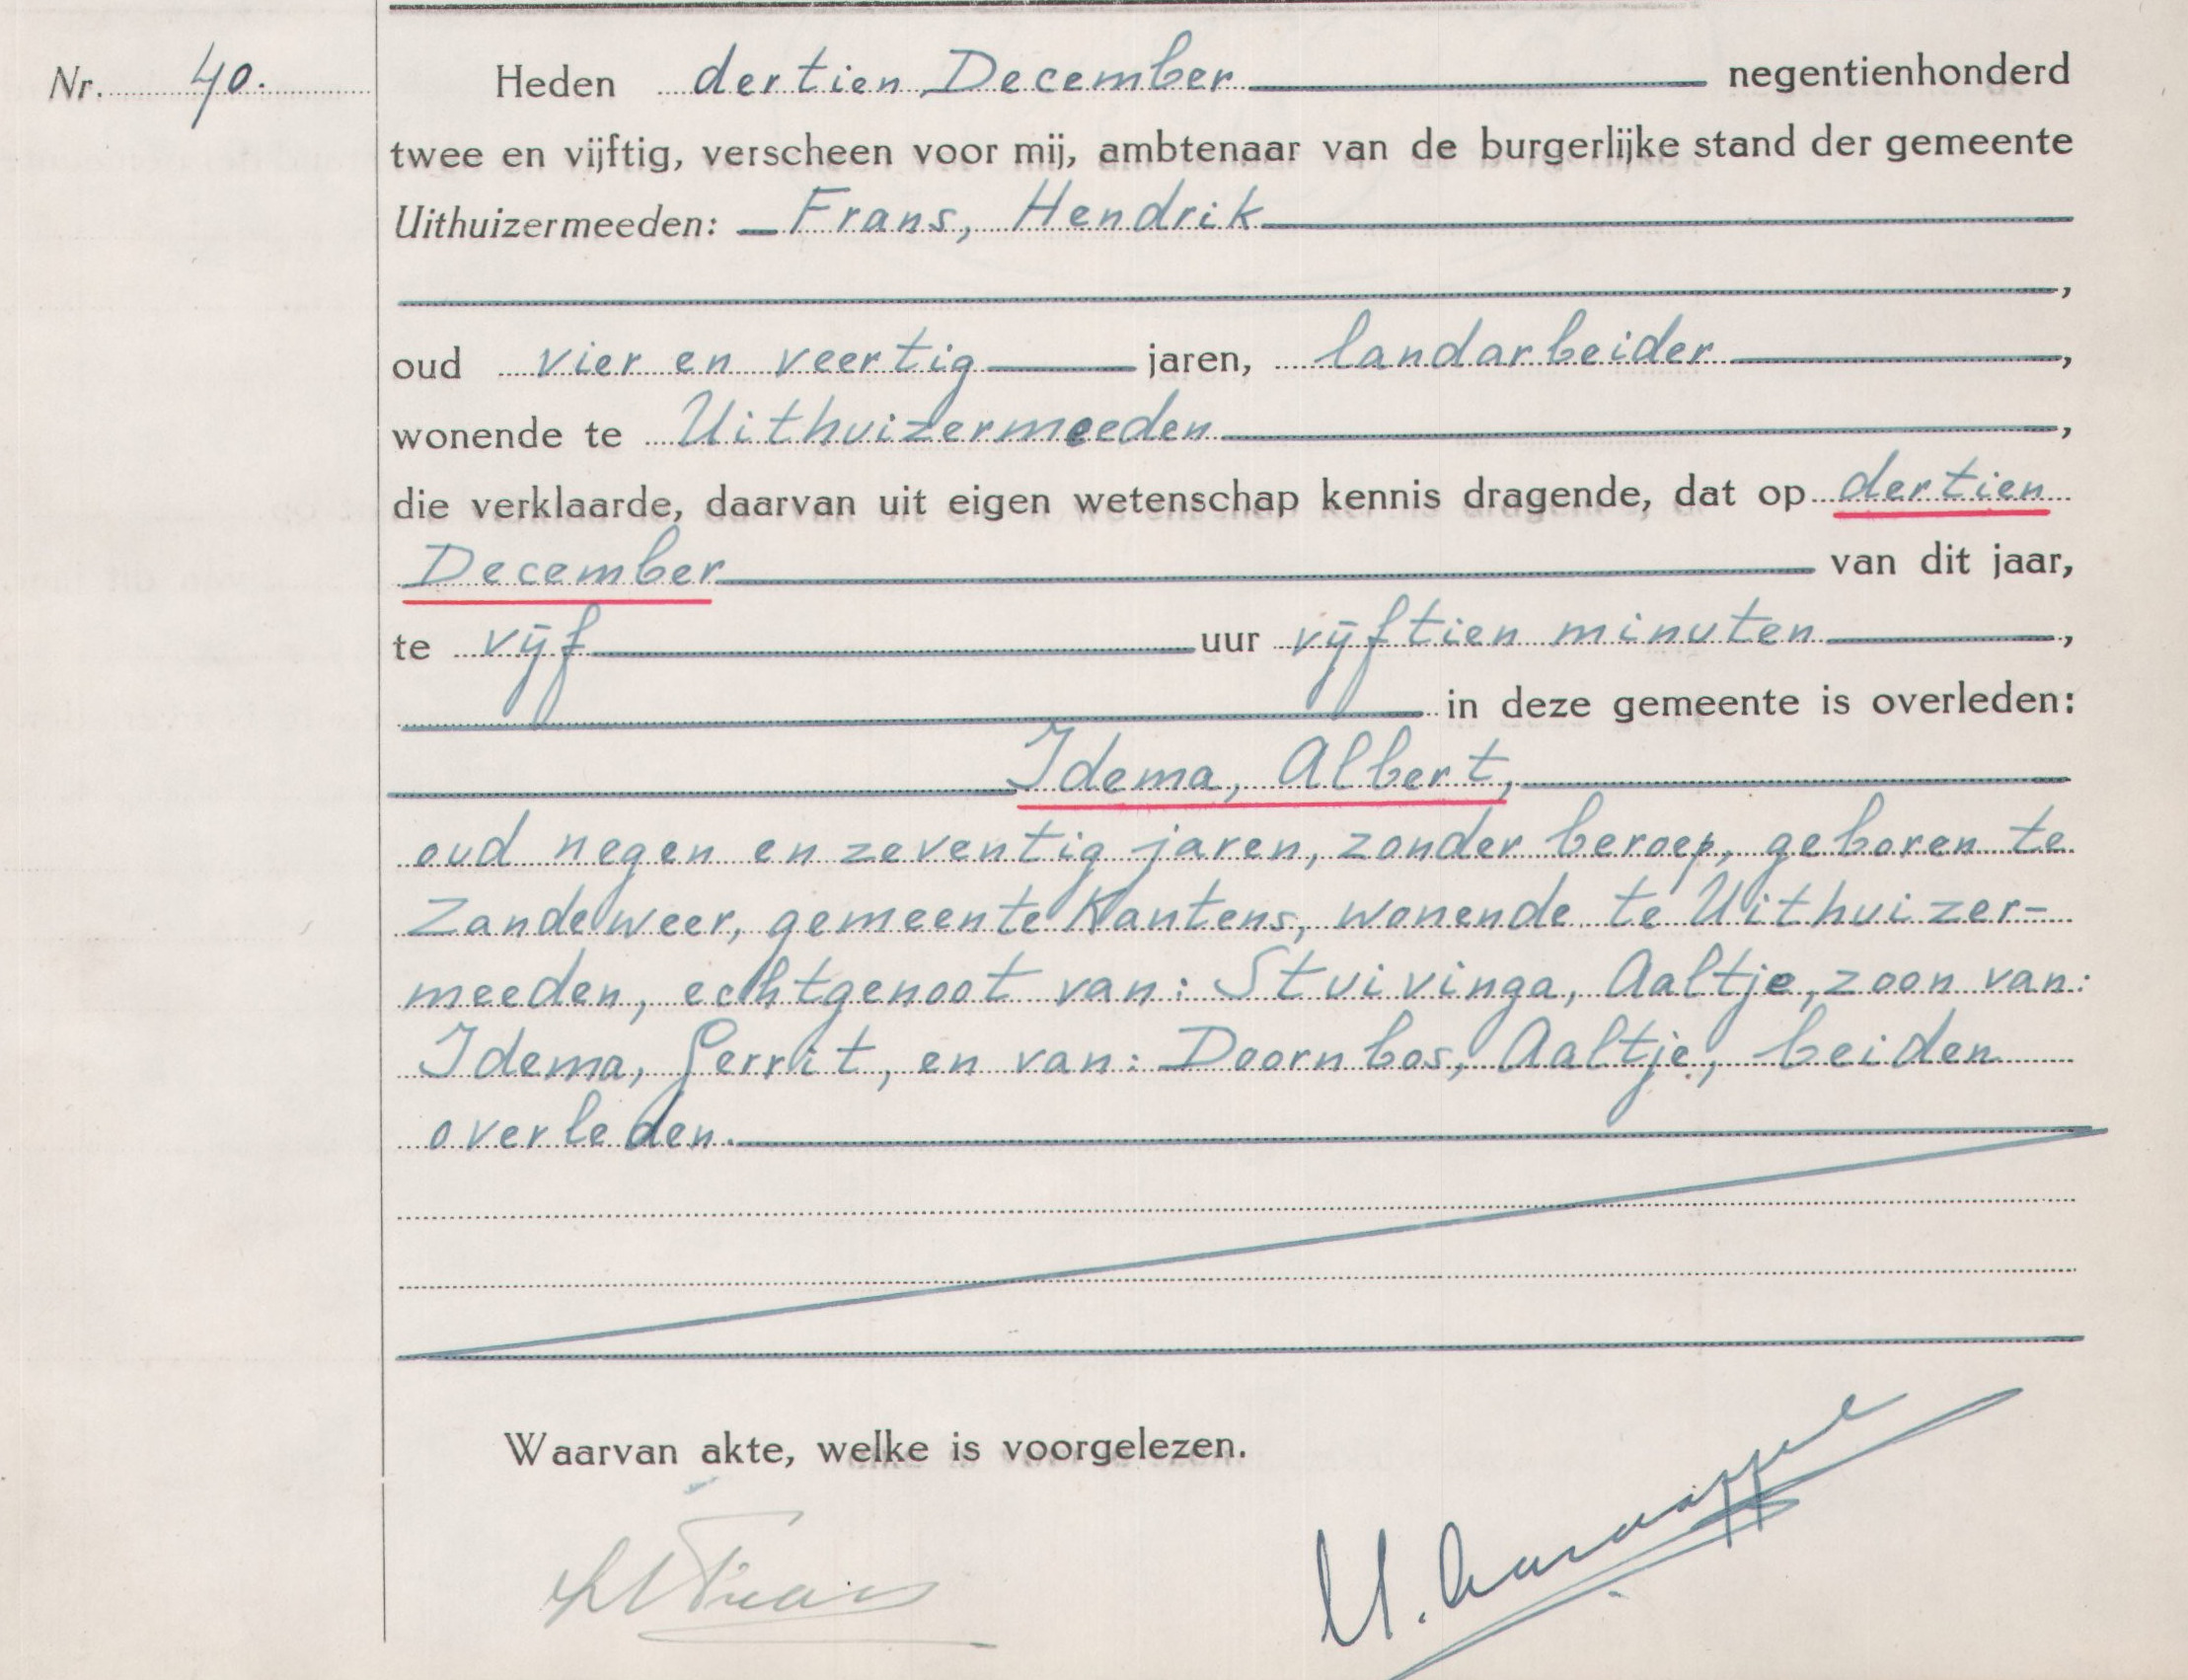 Nr. 40.
Heden dertien December negentienhonderd
twee en vijftig, verscheen voor mij, ambtenaar van de burgerlijke stand der gemeente
Uithuizermeeden: Frans, Hendrik
,
oud vier en veertig jaren, landarbeider,
wonende te Uithuizermeeden,
die verklaarde, daarvan uit eigen wetenschap kennis dragende, dat op dertien
December van dit jaar,
te vijf uur vijftien minuten,
in deze gemeente is overleden:
Idema, Albert,
oud negen en zeventig jaren, zonder beroep, geboren te
Zandeweer, gemeente Kantens, wonende te Uithuizer-
meeden, echtgenoot van: Stuivinga, Aaltje, zoon van:
Idema, Gerrit, en van: Doornbos, Aaltje, beiden
overleden.
Waarvan akte, welke is voorgelezen.
Frans